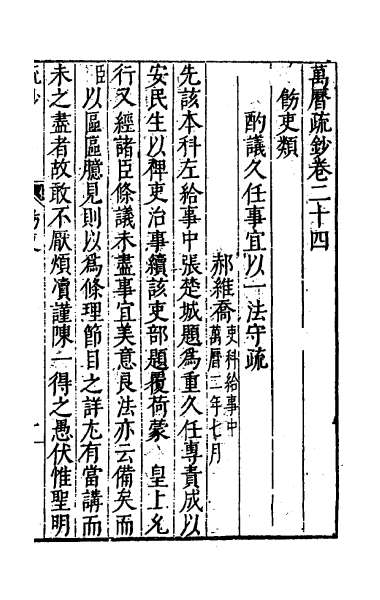 萬曆疏鈔卷二十四
飭吏類
酌議久任事宜以一法守疏
郝維喬吏科給事中
萬曆二年七月
先該本科左給事中張楚城題為重久任專責成以
安民生以裨吏治事續該吏部題覆荷蒙 皇上允
行又經諸臣條議未盡事宜美意良法亦云備矣而
臣以區區臆見則以為條理節目之詳尤有當講而
未之盡者故敢不厭煩瀆謹陳一得之愚伏惟聖明